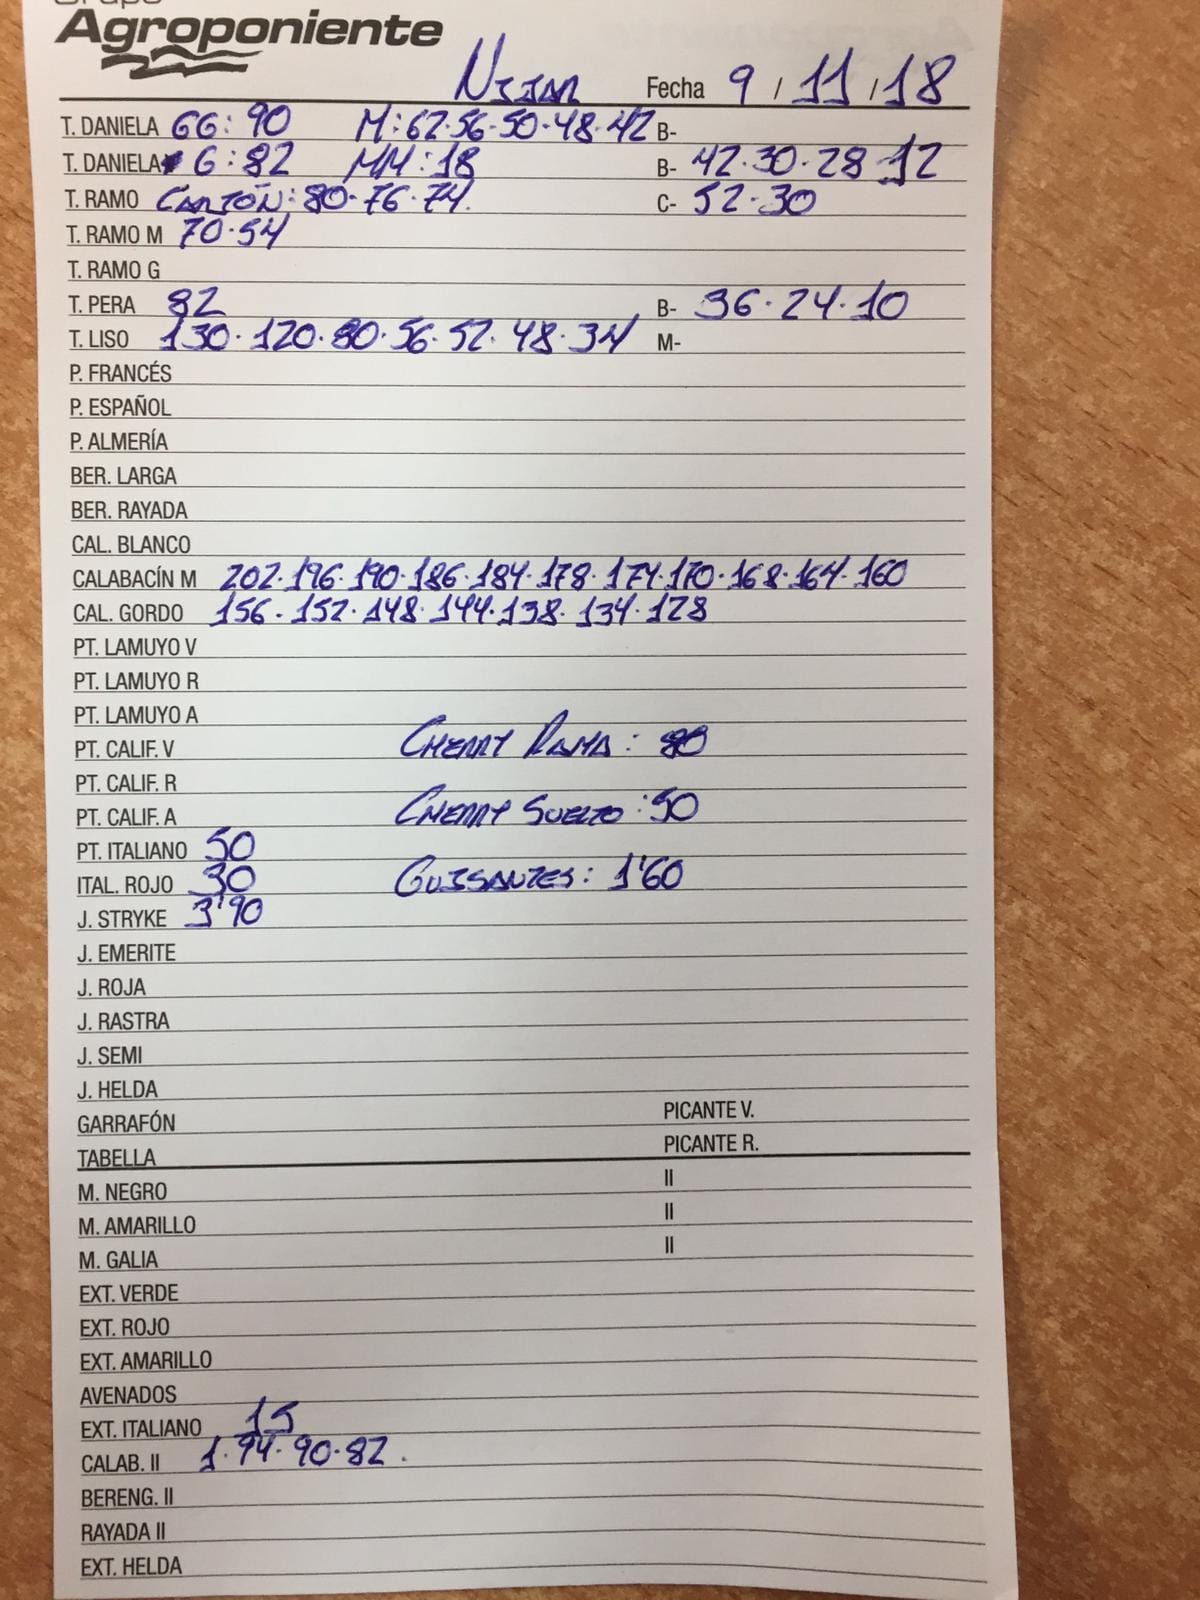 Grupo
Agroponiente
NIJAR Fecha 9 / 11 / 18
T. DANIELA GG: 90 M: 62.56.50.48.42 B-
T. DANIELA G: 82 MM: 18 B- 42.30.28.12
T. RAMO CARTÓN: 80.76.74. C- 52.30
T. RAMO M 70.54
T. RAMO G
T. PERA 82 B- 36.24.10
T. LISO 130.120.80.56.52.48.34 M-
P. FRANCÉS
P. ESPAÑOL
P. ALMERÍA
BER. LARGA
BER. RAYADA
CAL. BLANCO
CALABACÍN M 202.196.190.186.184.178.174.170.168.164.160
CAL. GORDO 156.152.148.144.138.134.128
PT. LAMUYO V
PT. LAMUYO R
PT. LAMUYO A
PT. CALIF. V CHERRY RAMA: 80
PT. CALIF. R
PT. CALIF. A CHERRY SUELTO: 50
PT. ITALIANO 50
ITAL. ROJO 30 GUISANTES: 1'60
J. STRYKE 3'90
J. EMERITE
J. ROJA
J. RASTRA
J. SEMI
J. HELDA
GARRAFÓN PICANTE V.
TABELLA PICANTE R.
M. NEGRO II
M. AMARILLO II
M. GALIA II
EXT. VERDE
EXT. ROJO
EXT. AMARILLO
AVENADOS
EXT. ITALIANO 15
CALAB. II 1.94.90.82.
BERENG. II
RAYADA II
EXT. HELDA